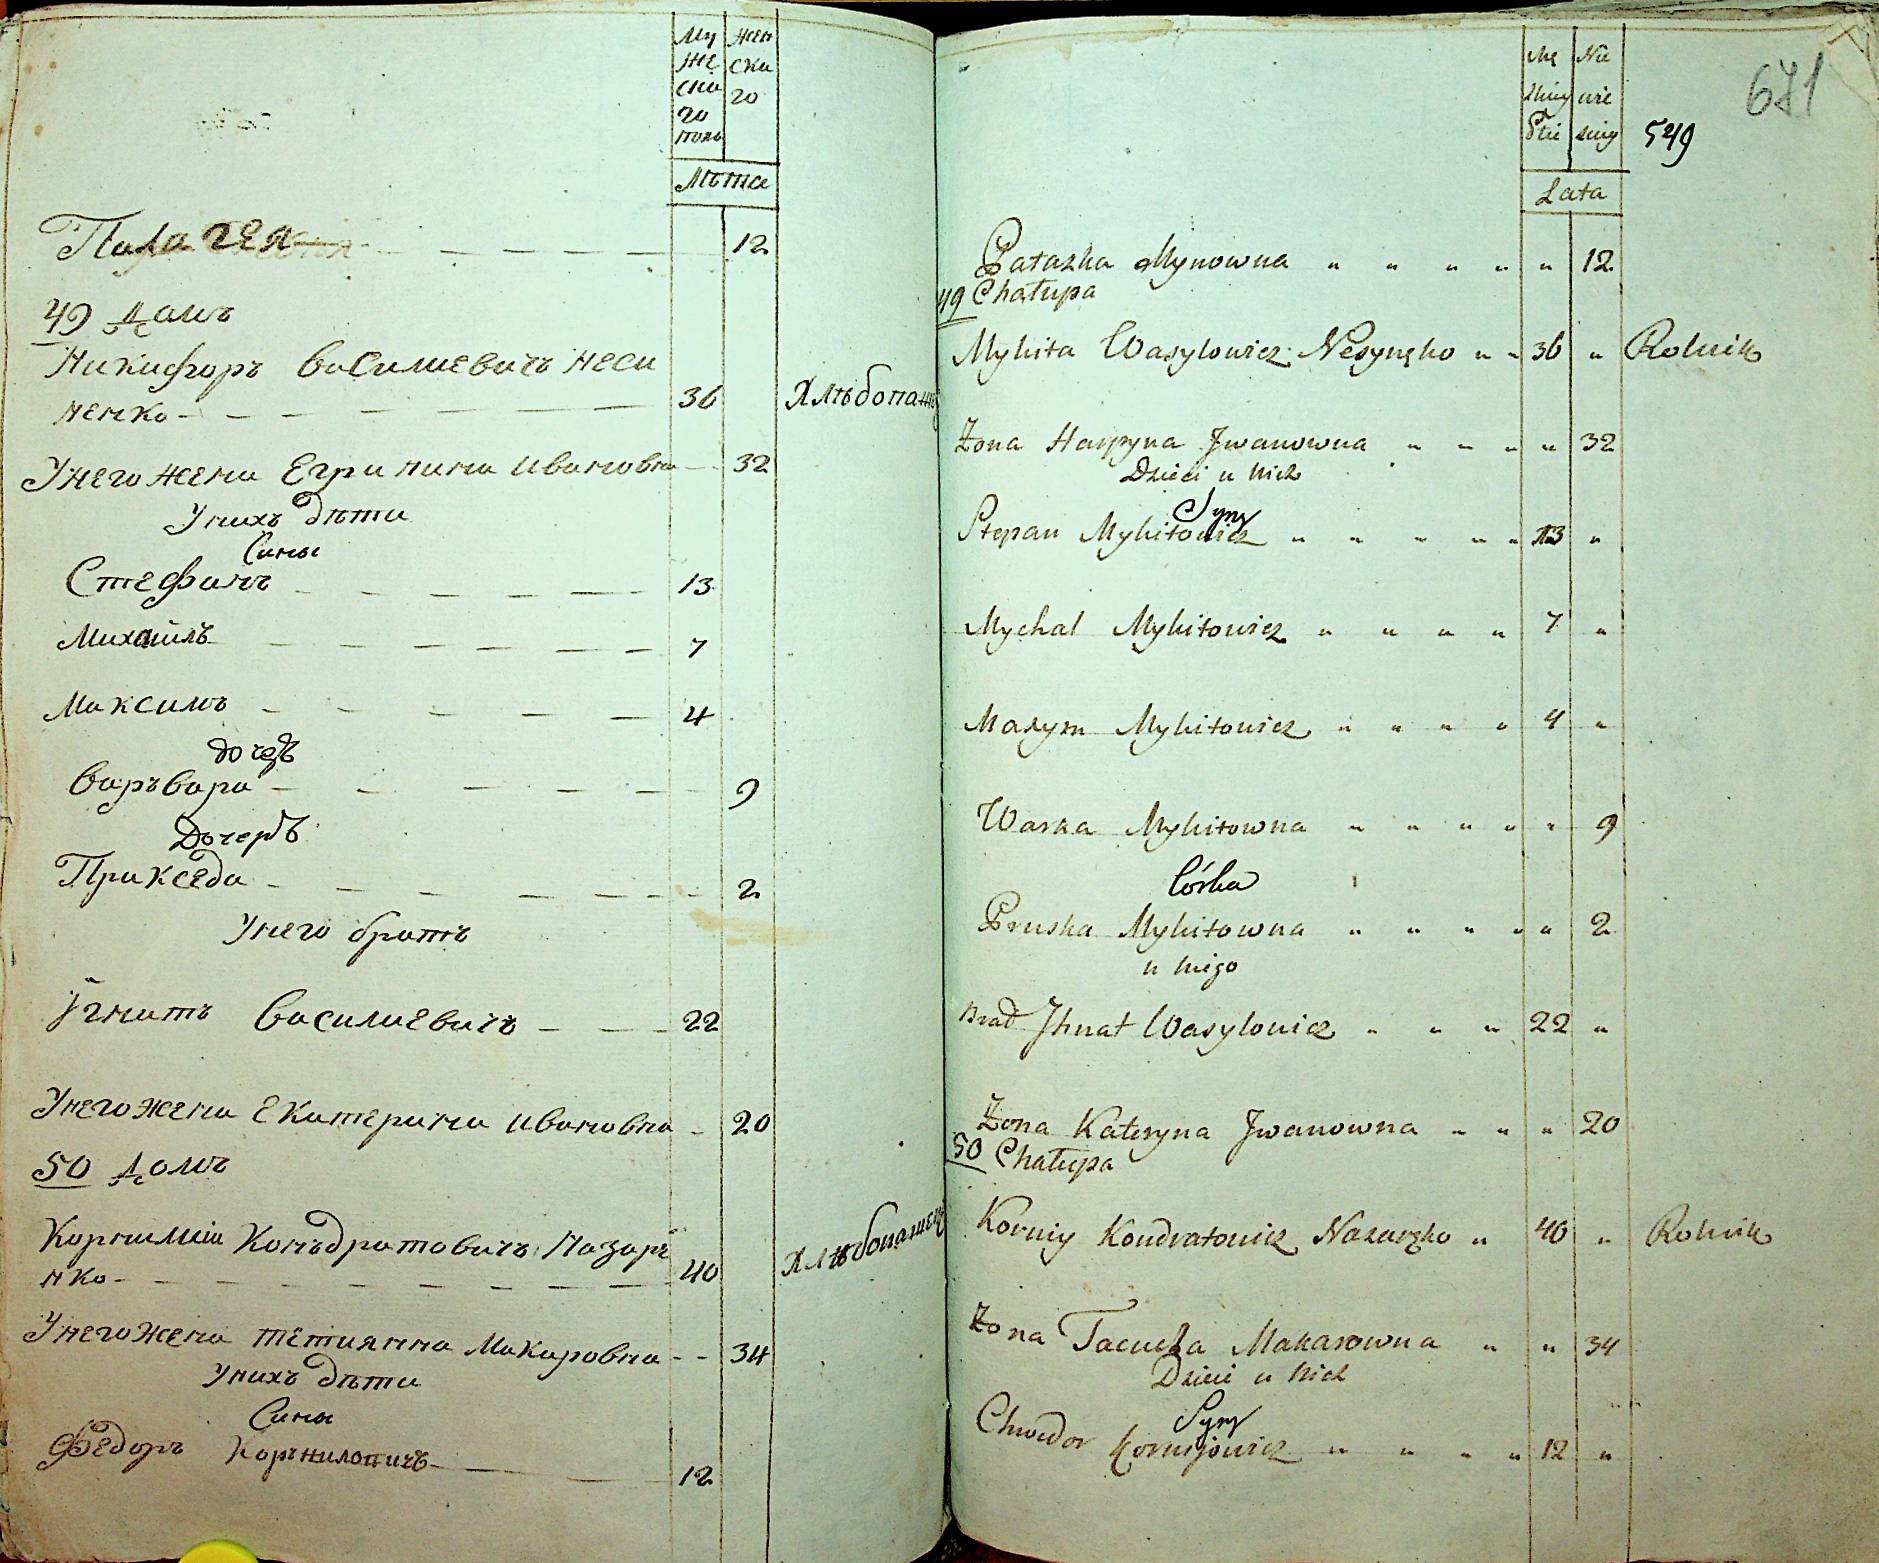 Му жен
же ска
ска го
го
полъ
Лѣта
Палагея 12
49 домъ
Никифоръ Василиевичъ Неси
ненко 36 Хлѣбопаш
У него жена Егрипина Ивановна 32
У нихъ дѣти
Сины
Стефанъ 13
Михаилъ 7
Максимъ 4
дочерь
Варъвара 9
Дочерь
Прикседа 2
У него братъ
Игнатъ Василиевичъ 22
У него жена Екатерина Ивановна 20
50 домъ
Корнилий Конъдратовичъ Назарѣ
нко 40 Хлѣбопашец
У него жена Тетиянна Макаровна 34
У нихъ дѣти
Сины
Федоръ Коръниловичъ 12
671
Mę Nie
zkiey wie
Płci sciey 549
Lata
Patazka Mynowna " " " " " 12
49 Chałupa
Mykita Wasylowicz Nesynęko " " 36 " Rolnik
Żona Harpyna Jwanowna " " " " 32
Dzieci u nich
Syny
Stepan Mykitowicz " " " " " 13 "
Mychal Mykitowicz " " " " 7 "
Maxym Mykitowicz " " " " 4 "
Warka Mykitowna " " " " " 9
Córka
Pruska Mykitowna " " " " " 2
u niego
Brat Jhnat Wasylowicz " " " 22 "
Żona Kateryna Jwanowna " " " 20
50 Chałupa
Korniy Kondratowicz Nazaręko " 40 " Rolnik
Żona Tacucha Makarowna " " 34
Dzieci u nich
Syny
Chwedor Kornijowicz " " " " 12 "